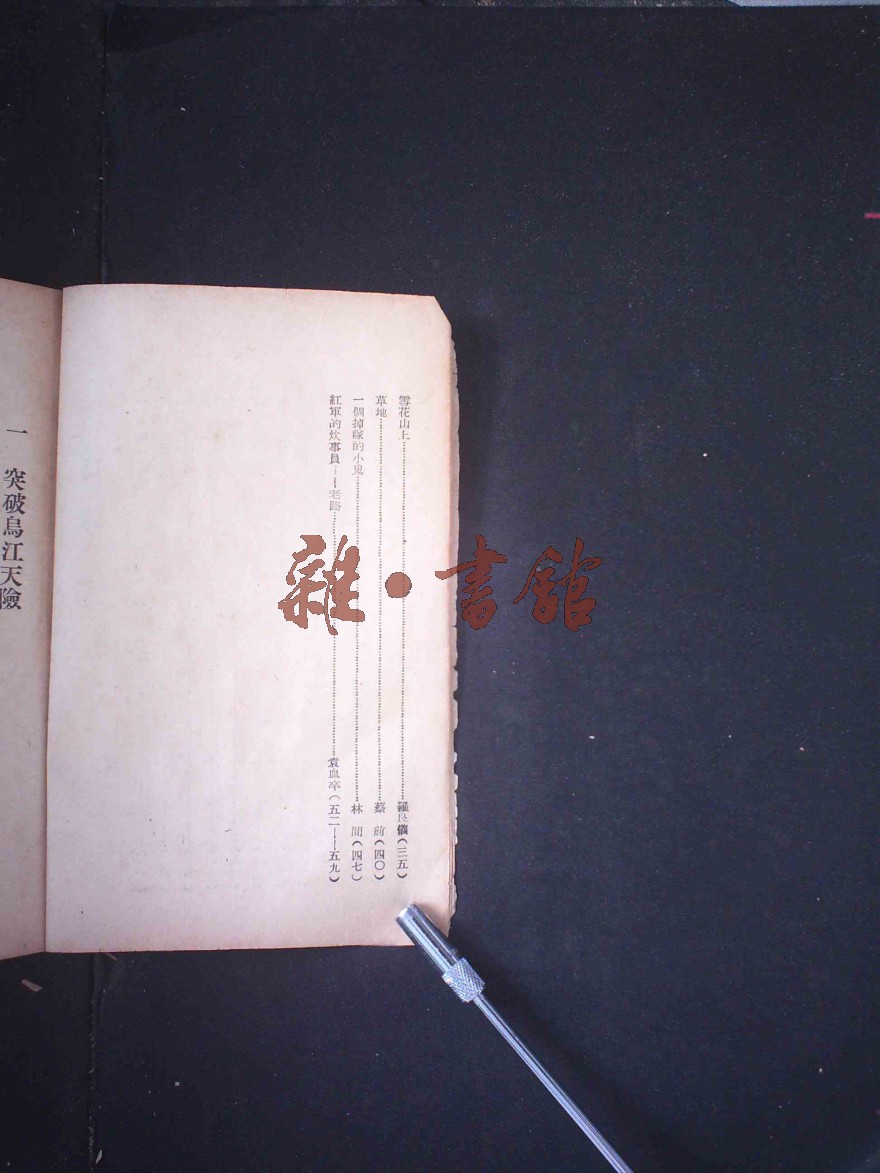 雪花山上……羅良儕(三五)
草地……蔡前(四〇)
一個掉隊的小鬼……林間(四七)
紅軍的炊事員——老路……袁血卒(五二——五九)
一 突破烏江天險
雜·書館